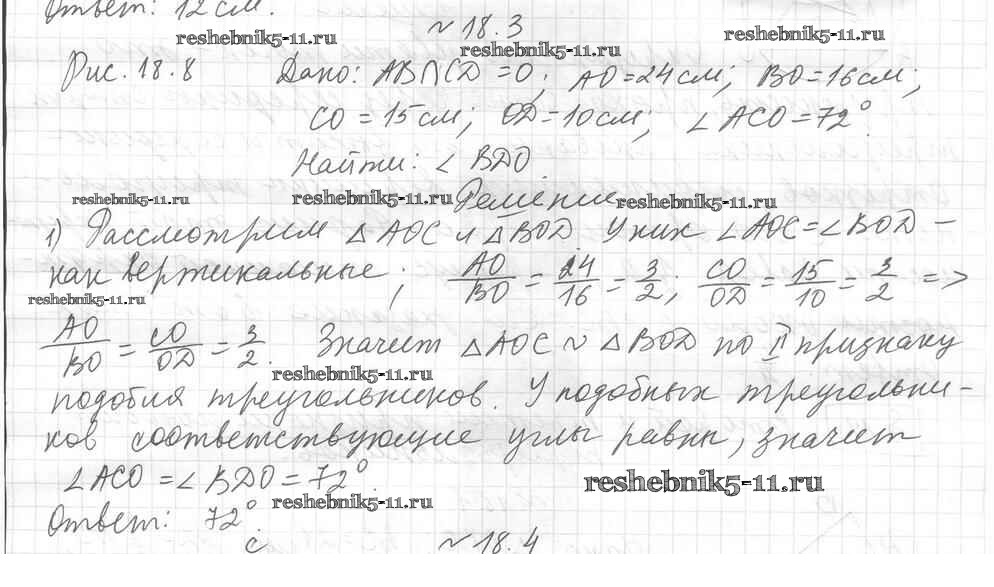 Ответ: 12 см.
№ 18.3
reshebnik5-11.ru reshebnik5-11.ru reshebnik5-11.ru
Рис. 18.8 Дано: AB∩CD=O; AO=24 см; BO=16 см;
CO=15 см; OD=10 см; ∠ACO=72°.
Найти: ∠BDO.
reshebnik5-11.ru reshebnik5-11.ru Решение reshebnik5-11.ru
1) Рассмотрим △AOC и △BOD. У них ∠AOC=∠BOD –
как вертикальные; AO/BO = 24/16 = 3/2; CO/OD = 15/10 = 3/2 =>
reshebnik5-11.ru
AO/BO = CO/OD = 3/2. Значит △AOC ~ △BOD по II признаку
reshebnik5-11.ru
подобия треугольников. У подобных треугольни-
ков соответствующие углы равны, значит
∠ACO=∠BDO=72°.
reshebnik5-11.ru reshebnik5-11.ru
Ответ: 72°.
№ 18.4